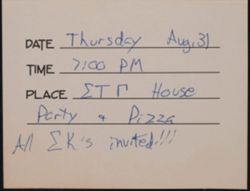 DATE Thursday Aug, 31
TIME 7:00 PM
PLACE ΣΤΓ House
Party + Pizza
All ΣΚ's invited!!!